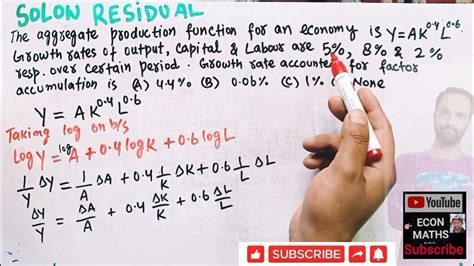 SOLON RESIDUAL
The aggregate production function for an economy is Y=AK^0.4 L^0.6
Growth rates of output, capital & Labour are 5%, 8% & 2%
resp. over certain period. Growth rate accounted for factor
accumulation is (A) 4.4% (B) 0.06% (C) 1% None
Y = AK^0.4 L^0.6
Taking log on b/s
logY = logA + 0.4logK + 0.6logL
1/Y ΔY = 1/A ΔA + 0.4 1/K ΔK + 0.6 1/L ΔL
ΔY/Y = ΔA/A + 0.4 ΔK/K + 0.6 ΔL/L
SUBSCRIBE
YouTube
ECON
MATHS
Subscribe